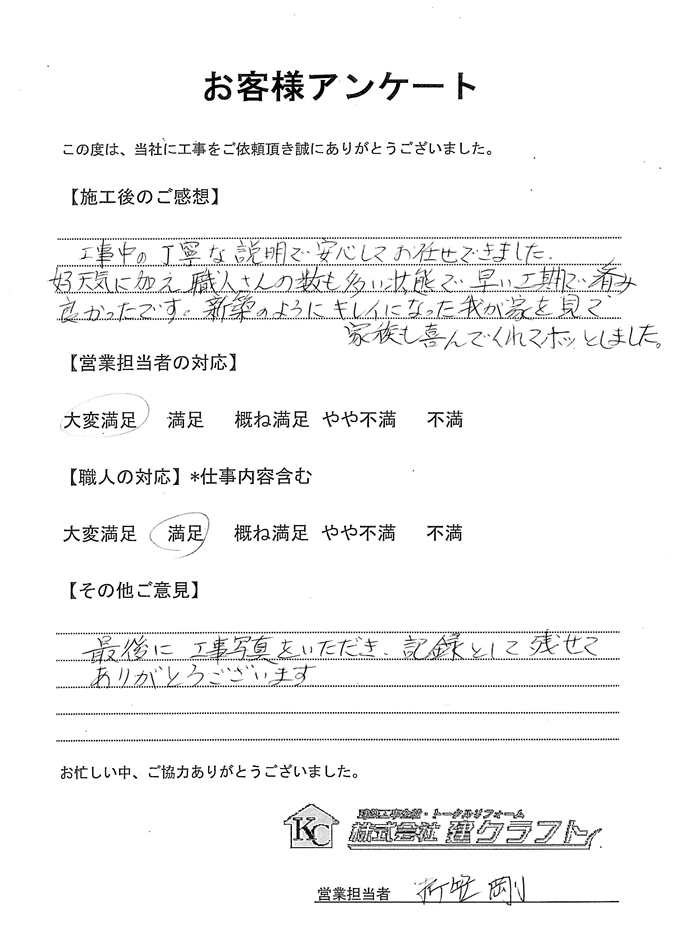 お客様アンケート
この度は、当社に工事をご依頼頂き誠にありがとうございました。
【施工後のご感想】
工事中の丁寧な説明で安心してお任せできました。
好天気に加え職人さんの数も多い状態で早い工期で済み
良かったです。新築のようにキレイになった我が家を見て
家族も喜んでくれてホッとしました。
【営業担当者の対応】
大変満足 満足 概ね満足 やや不満 不満
【職人の対応】*仕事内容含む
大変満足 満足 概ね満足 やや不満 不満
【その他ご意見】
最後に工事写真をいただき、記録として残せて
ありがとうございます
お忙しい中、ご協力ありがとうございました。
KC
建築工事全般・トータルリフォーム
株式会社 建クラフト
営業担当者 折笠 剛